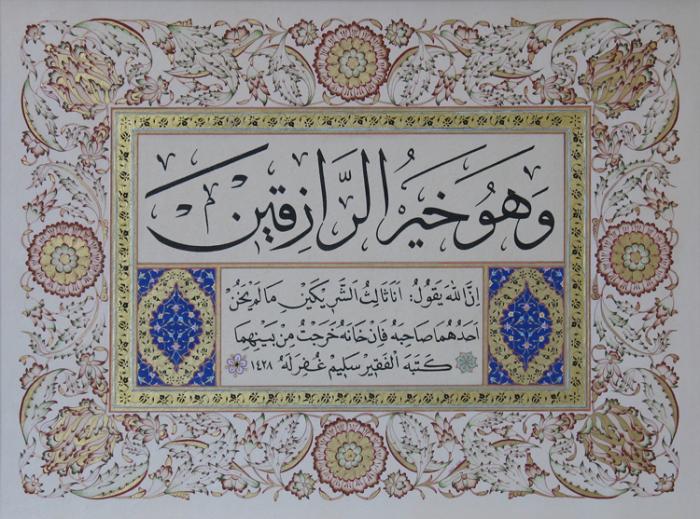 وَهُوَ خَيْرُ الرَّازِقِينَ
إِنَّ اللهَ يَقُولُ: أَنَا ثَالِثُ الشَّرِيكَيْنِ مَا لَمْ يَخُنْ
أَحَدُهُمَا صَاحِبَهُ فَإِنْ خَانَهُ خَرَجْتُ مِنْ بَيْنِهِمَا
كَتَبَهُ الفَقِيرُ سَلِيمْ غُفِرَ لَهُ ١٤٢٨